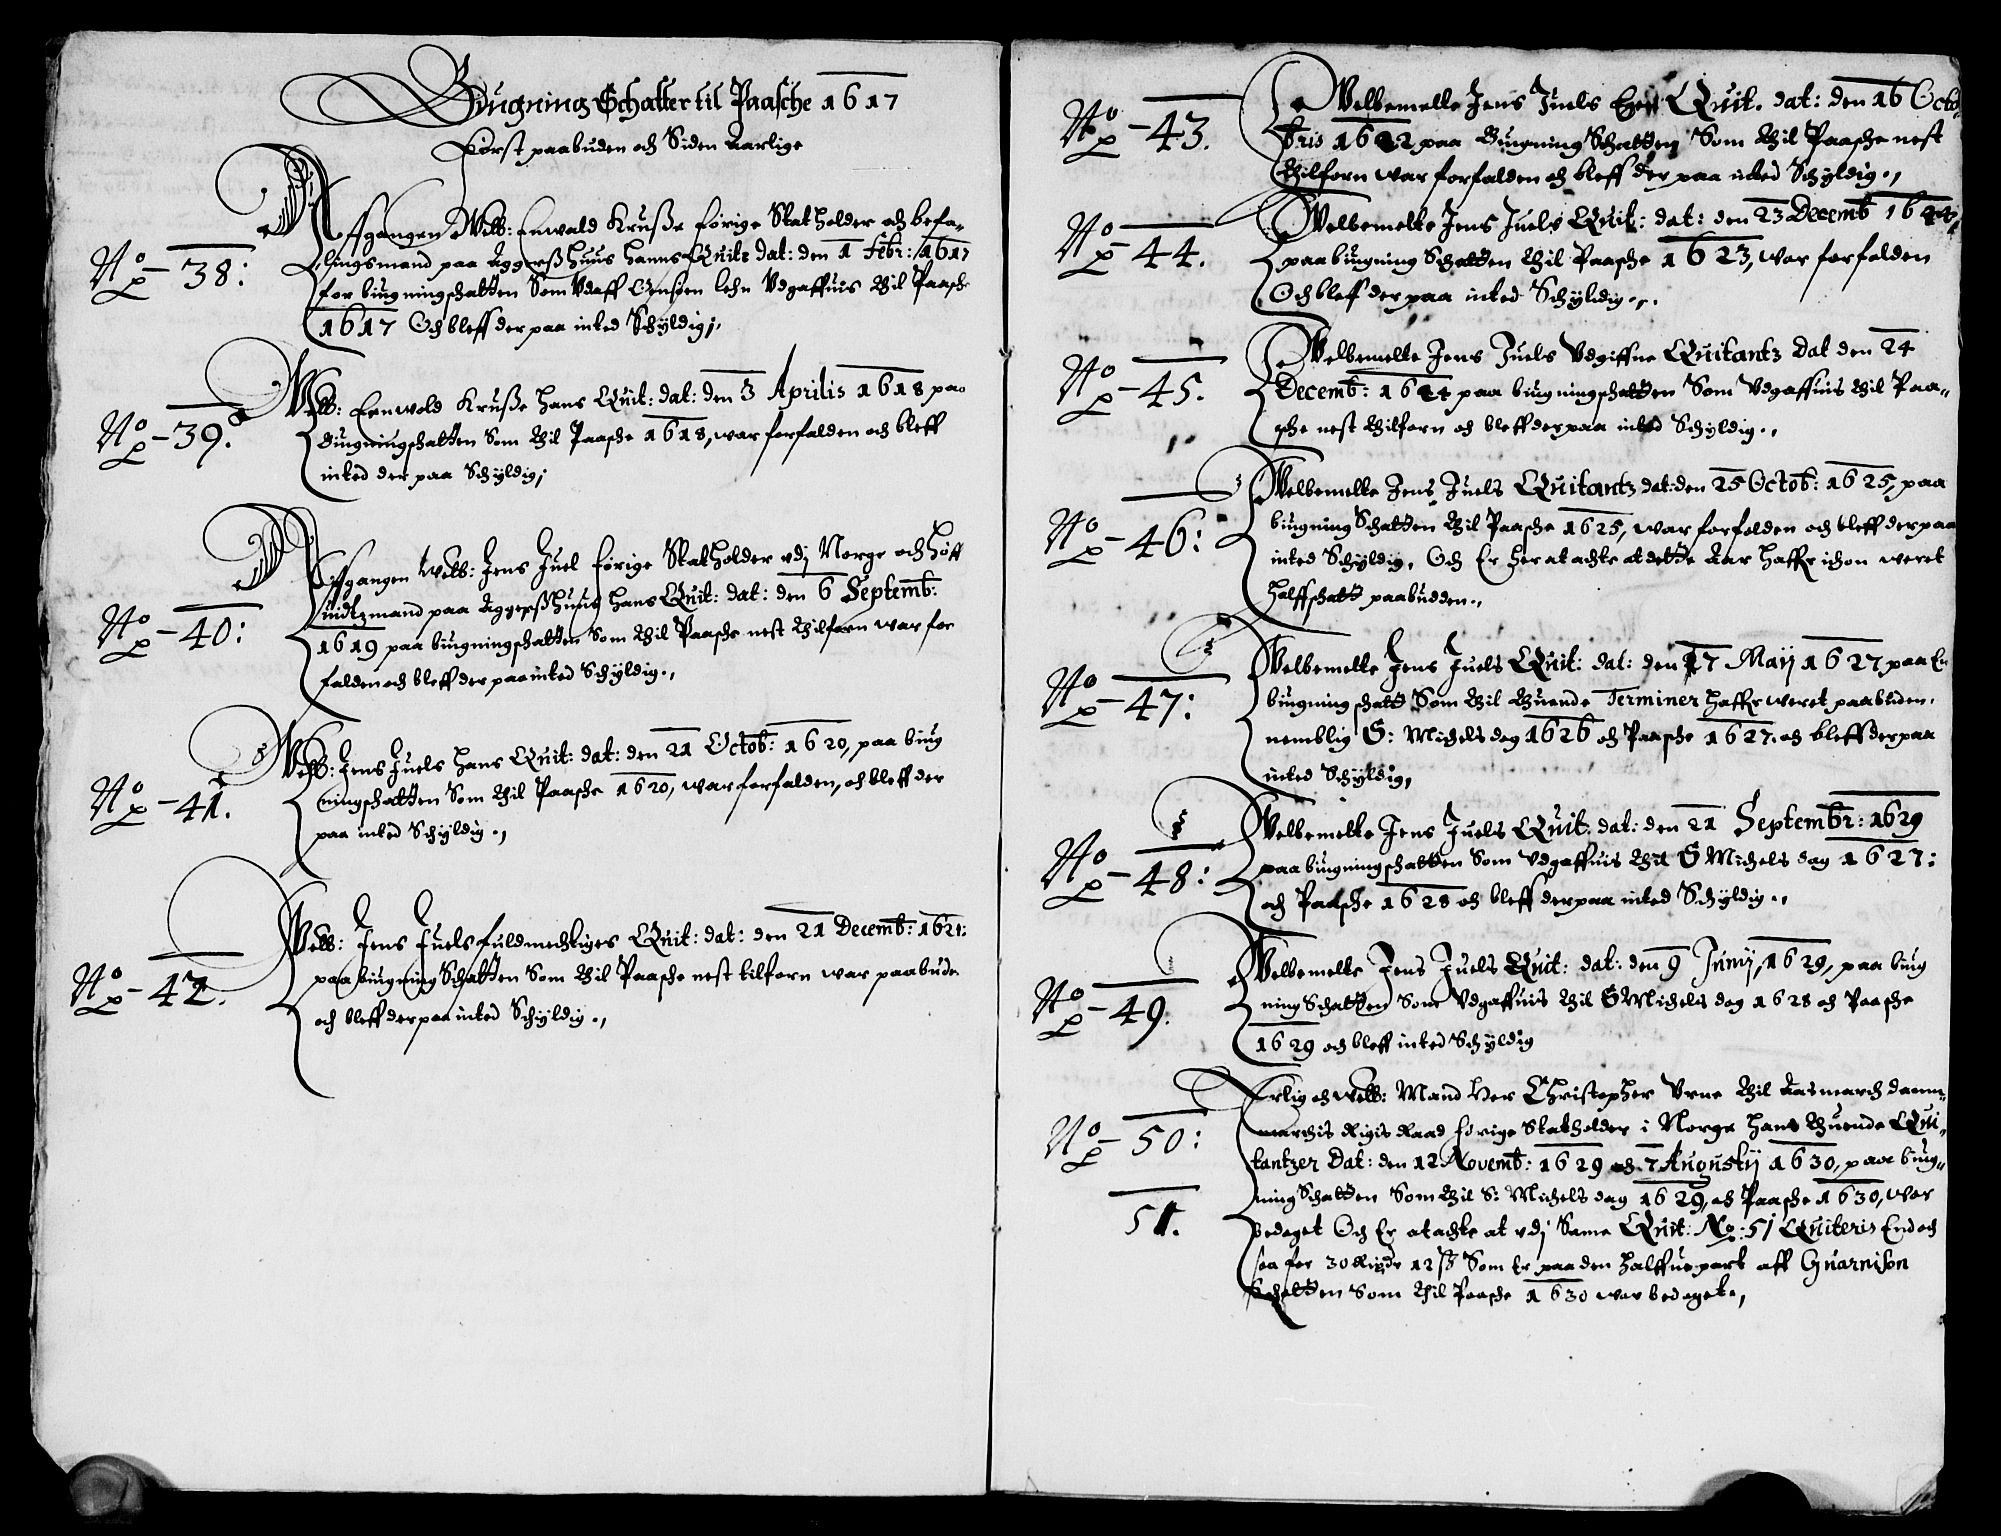 Bugning Schatter til Paasche 1617
Først paabuden och Siden Aarlige
No 38: Affgangen Welb: Enwald Kruße forige Statholder och befa-
lingsmand paa Aggerßhuus hanns Quitz dat: den 1 Febr: 1617
for bugningschatten Som Vdaff lehn Vdgaffuis thil Paasche
1617 Och bleff der paa inted Schÿldig;
No 39. Welb: Ennwold Kruße hans Quit: dat: den 3 Aprilis 1618 paa
bugningschatten Som thil Paasche 1618, war forfalden och bleff
inted der paa Schÿldig;
No 40: Affgangen Welb: Jens Juel forige Statholder vdj Norge och höff
uidtzmand paa Aggerßhuus hans Quit: dat: den 6 Septemb:
1619 paa bugningschatten Som thil Paasche nest thilforn war for
falden och bleff der paa inted Schÿldig.,
No 41. Welb: Jens Juels hans Quit: dat: den 21 Octob: 1620, paa bug
ningschatten Som thil Paasche 1620, war forfalden, och bleff der
paa inted Schÿldig.,
No 42. Welb: Jens Juels fuldmechtiges Quit: dat: den 21 Decemb: 1621:
paa bugning Schatten Som thil Paasche nest tilforn war paabude
och bleff der paa inted Schÿldig.,
No 43. Welbemelte Jens Juels Egen Quit. dat: den 16 Octo-
bris 1622 paa Bugning Schatten Som thil Paasche nest
thilforn war forfalden och bleff der paa inted Schÿldig.,
No 44. Welbemelte Jens Juels Quit: dat: den 23 Decemb
paa bugning Schatten thil Paasche 1623, war forfalden
Och bleff der paa inted Schÿldig.,.
No 45. Welbemelte Jens Juels Vdgiffne Quitantz Dat den 24
Decemb: 1624 paa bugningschatten Som Vdgaffuis thil Paa-
sche nest thilforn och bleff der paa inted Schÿldig.,
No 46: Welbemelte Jens Juels Quitantz dat: den 25 Octob: 1625, paa
bugning Schatten thil Paasche 1625, war forfalden och bleff der paa
inted Schÿldig, Och Er her at achte at dette Aar haffr ichon weret
halffschatt paabudden.,
No 47: Welbemelte Jens Juels Quit: dat: den 17 Maij 1627 paa En
bugning schatt Som thil thuende Terminer haffr weret paabuden,
nemblig S: Michels dag 1626 och Paasche 1627. och bleff der paa
inted Schÿldig,
No 48: Welbemelte Jens Juels Quit. dat: den 21 Septembr: 1629
paa bugningschatten Som Vdgaffuis thil S Michels dag 1627:
och Paasche 1628 och bleff der paa inted Schÿldig.,
No 49. Welbemelte Jens Juels Quit: dat: den 9 Junij, 1629, paa bug
ning Schatten Som Vdgaffuis thil S Michels dag 1628 och Paasche
1629 och bleff inted Schÿldig
No 50: Erlig och Welb: Mand Her Christopher Vrne thil Aasmarch Danm-
marchis Rigis Raad forige Statholder i Norge hans thuende Qui-
tantzer Dat: den 12 Novemb: 1629 och 7 Augustij 1630, paa bug-
ning Schatten Som thil S: Michels dag 1629, och Paasche 1630, war
51. bedaget Och Er at achte at vdj Same Quit: No: 51 Quiteris End och
saa for 30 Rixdr 12 ß Som Er paa den halffue part aff Guarnison
Schatten Som thil Paasche 1630 war bedaget.,